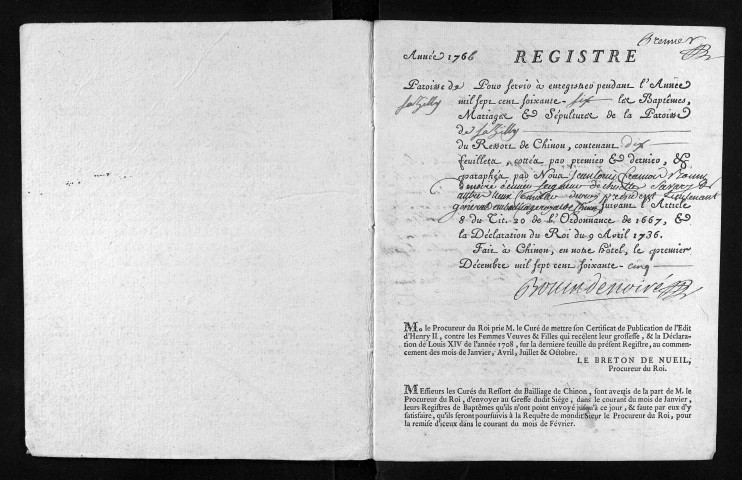 Premier
Année 1766 REGISTRE
Paroisse de Pour servir à enregistrer pendant l'Année
Lézilly mil sept cent soixante-six les Baptêmes,
Mariages & Sépultures de la Paroisse
de Lézilly
du Ressort de Chinon, contenant dix
feuillets cottés par premier & dernier, &
paraphés par Nous Jean Louis François Bouin
de noiré écuyer seigneur de
conseiller du roy président Lieutenant
général au bailliage royal de Chinon, suivant l'Article
8 du Tit. 20 de l'Ordonnance de 1667, &
la Déclaration du Roi du 9 Avril 1736.
Fait à Chinon, en notre hôtel, le premier
Décembre mil sept cent soixante-cinq
Bouin de noiré
M. le Procureur du Roi prie M. le Curé de mettre son Certificat de Publication de l'Edit
d'Henry II, contre les Femmes Veuves & Filles qui recélent leur grossesse, & la Déclara-
tion de Louis XIV de l'année 1708, sur la derniere feuille du présent Registre, au com-
mencement des mois de Janvier, Avril, Juillet & Octobre.
LE BRETON DE NUEIL,
Procureur du Roi.
MEssieurs les Curés du Ressort du Bailliage de Chinon, sont avertis de la part de M. le
Procureur du Roi, d'envoyer au Greffe dudit Siége, dans le courant du mois de Janvier,
leurs Registres de Baptêmes qu'ils n'ont point envoyé jusqu'à ce jour, & faute par eux d'y
satisfaire, qu'ils seront poursuivis à la Requête de mondit Sieur le Procureur du Roi, pour
la remise d'iceux dans le courant du mois de Février.